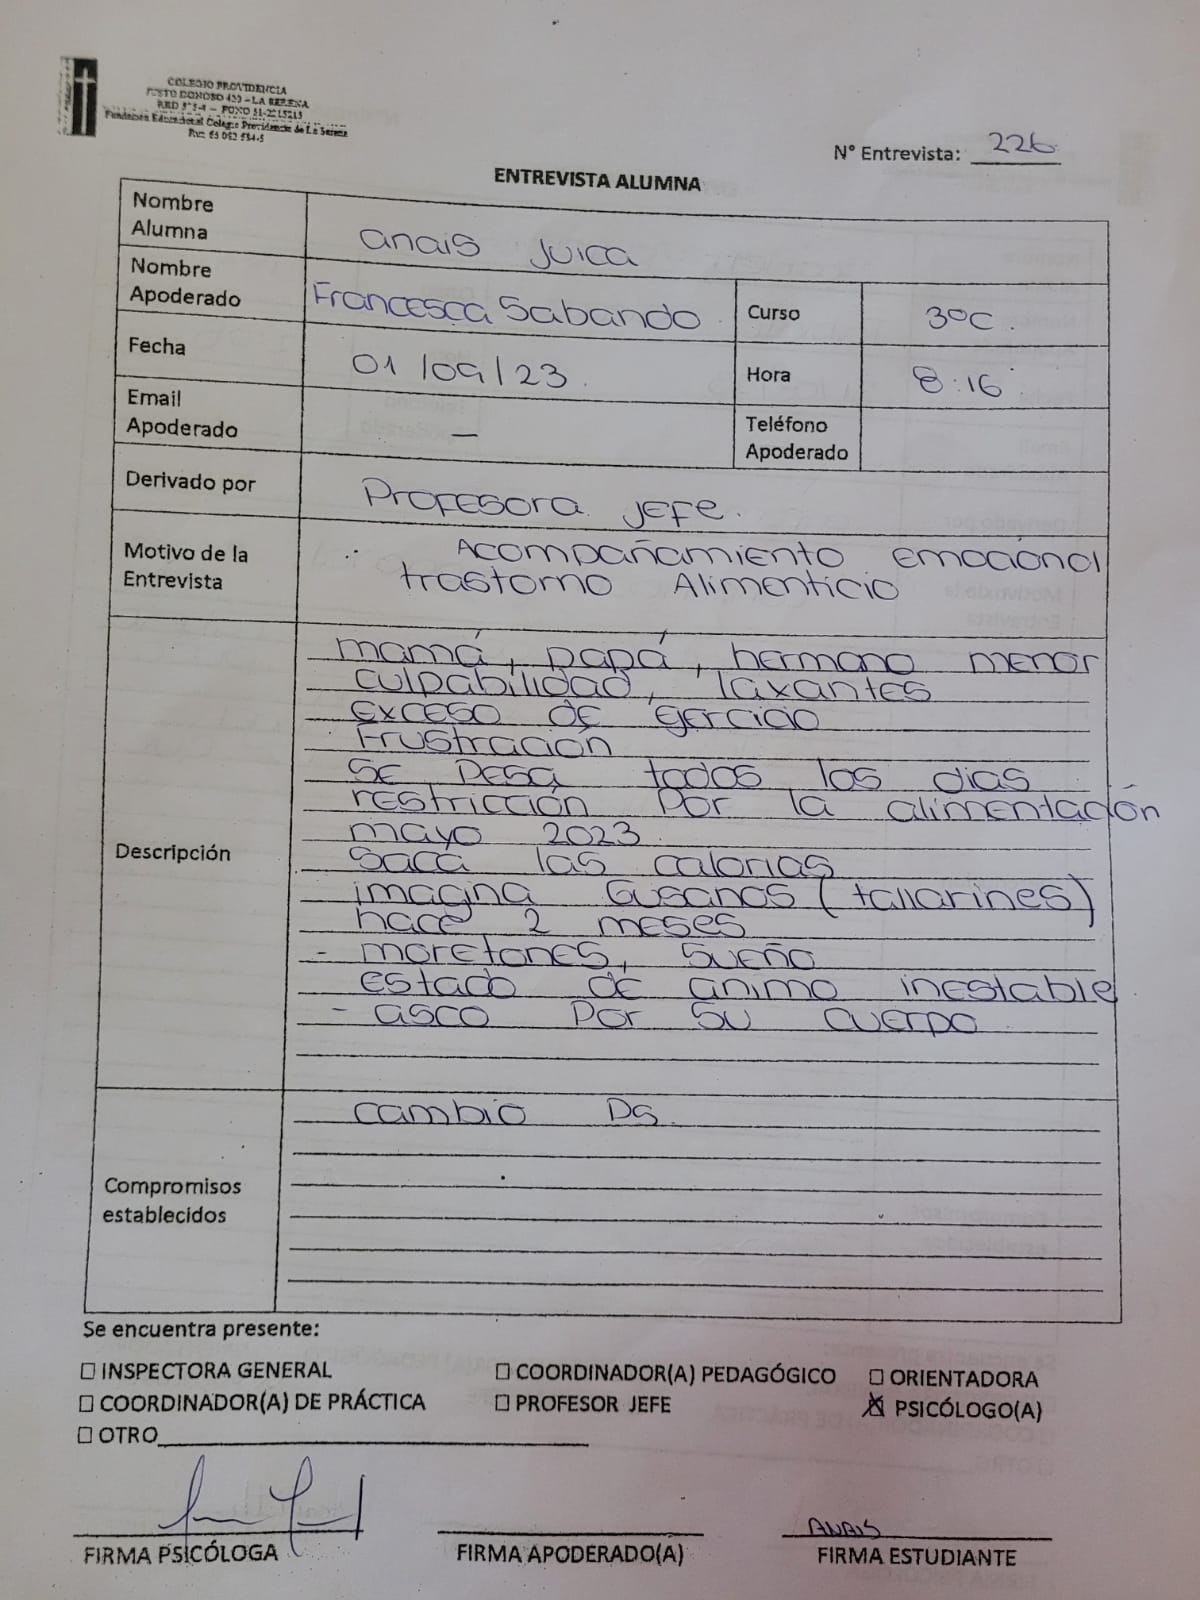 COLEGIO PROVIDENCIA
JUSTO DONOSO 420 - LA SERENA
Fundación Educacional Colegio Providencia de La Serena
N° Entrevista: 226
ENTREVISTA ALUMNA
Nombre Alumna
anais Juica
Nombre Apoderado
Francesca Sabando
Curso
3°C.
Fecha
01/09/23.
Hora
8:16
Email Apoderado
—
Teléfono Apoderado
Derivado por
Profesora Jefe.
Motivo de la Entrevista
Acompañamiento emocional
trastorno Alimenticio
Descripción
mamá, papá, hermano menor
culpabilidad, laxantes
exceso de ejercicio
Frustración
se pesa todos los dias
restricción por la alimentación
mayo 2023
saca las calorias
imagina Gusanos (tallarines)
hace 2 meses
- moretones, sueño
estado de animo inestable
- asco por su cuerpo
Compromisos establecidos
cambio Ps.
Se encuentra presente:
☐ INSPECTORA GENERAL ☐ COORDINADOR(A) PEDAGÓGICO ☐ ORIENTADORA
☐ COORDINADOR(A) DE PRÁCTICA ☐ PROFESOR JEFE ☒ PSICÓLOGO(A)
☐ OTRO
ANAIS
FIRMA PSICÓLOGA FIRMA APODERADO(A) FIRMA ESTUDIANTE